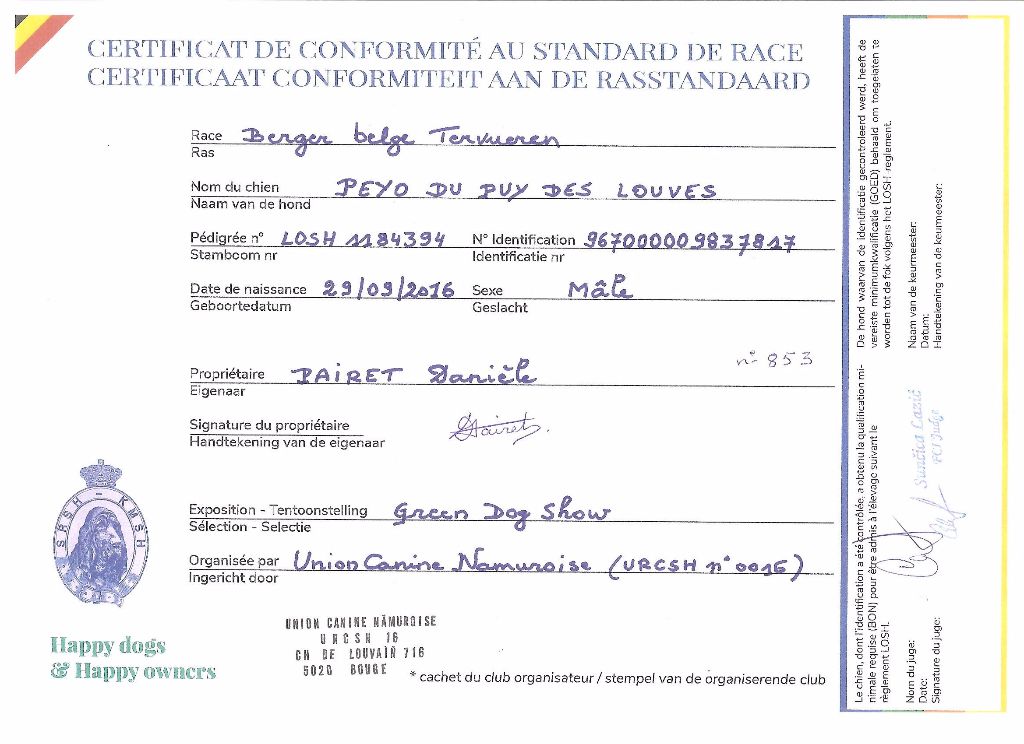 CERTIFICAT DE CONFORMITÉ AU STANDARD DE RACE
CERTIFICAAT CONFORMITEIT AAN DE RASSTANDAARD
Race Berger belge Tervueren
Ras
Nom du chien PEYO DU PUY DES LOUVES
Naam van de hond
Pédigrée n° LOSH 1184394 N° Identification 967000009837817
Stamboom nr Identificatie nr
Date de naissance 29/09/2016 Sexe Mâle
Geboortedatum Geslacht
n° 853
Propriétaire PAIRET Danièle
Eigenaar
Signature du propriétaire
Handtekening van de eigenaar
Exposition - Tentoonstelling Green Dog Show
Sélection - Selectie
Organisée par Union Canine Namuroise (URCSH n° 0016)
Ingericht door
SRSH - KMSH
Happy dogs
& Happy owners
UNION CANINE NAMUROISE
URCSH 16
CH DE LOUVAIN 716
5020 BOUGE
* cachet du club organisateur / stempel van de organiserende club
Le chien, dont l'identification a été contrôlée, a obtenu la qualification mi-
nimale requise (BON) pour être admis à l'élevage suivant le
règlement LOSH.
Nom du juge:
Date:
Signature du juge:
Sunčica Lazić
FCI Judge
De hond waarvan de identificatie gecontroleerd werd, heeft de
vereiste minimumkwalificatie (GOED) behaald om toegelaten te
worden tot de fok volgens het LOSH -reglement.
Naam van de keurmeester:
Datum:
Handtekening van de keurmeester: